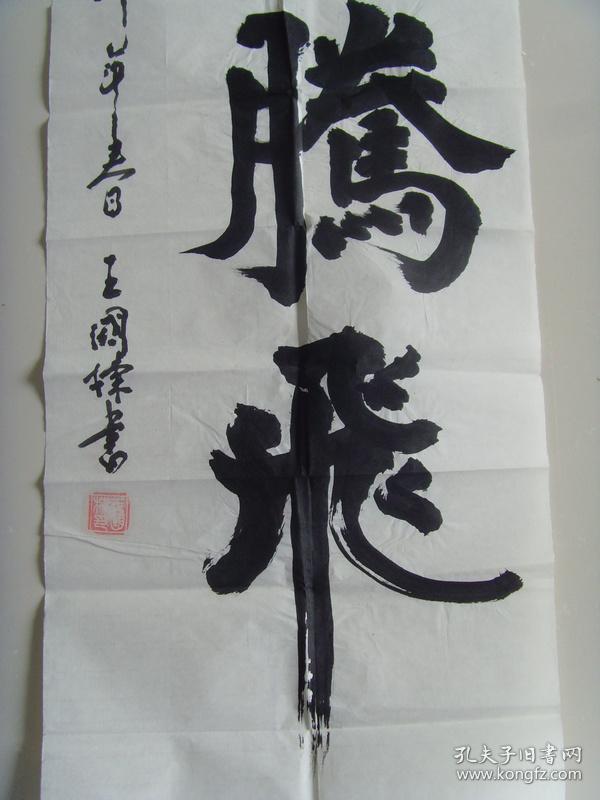 騰飛
年春日 王國標書
孔夫子旧書网
www.kongfz.com